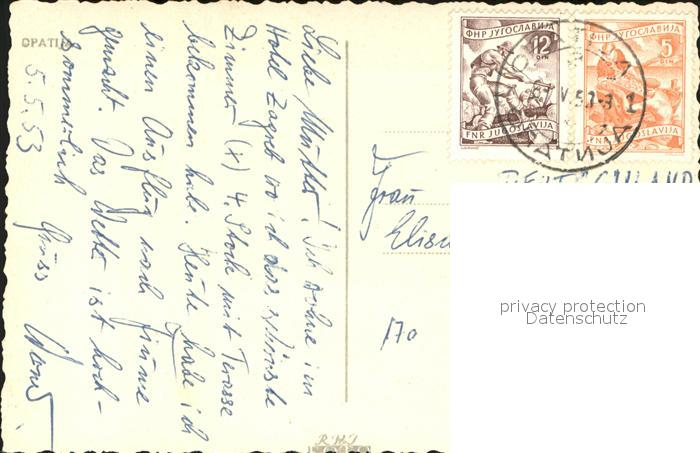 OPATIJA
5.5.53
Liebe Mutter! Ich wohne im
Hotel Zagreb wo ich das schönste
Zimmer (x) 4. Stock mit Terasse
bekommen habe. Heute habe ich
einen Ausflug nach Fiume
gemacht. Das Wetter ist hoch-
sommerlich Gruss
Frau
170
ФНР ЈУГОСЛАВИЈА
12
DIN
FNR JUGOSLAVIJA
ФНР ЈУГОСЛАВИЈА
5
DIN
FNR JUGOSLAVIJA
DEUTSCHLAND
privacy protection
Datenschutz